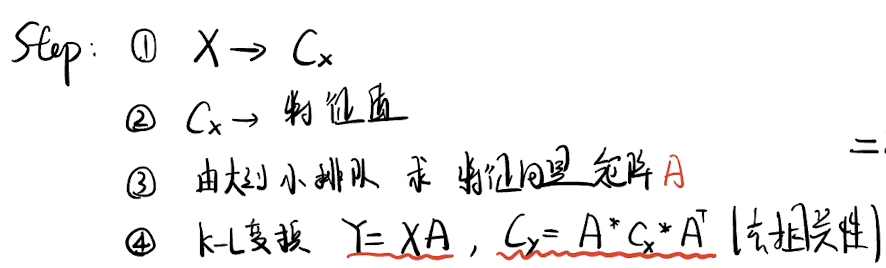 Step: ① X → Cx
② Cx → 特征值
③ 由大到小排队 求 特征向量矩阵A =
④ K-L变换 Y = XA , Cy = A * Cx * Aᵀ (去相关性)